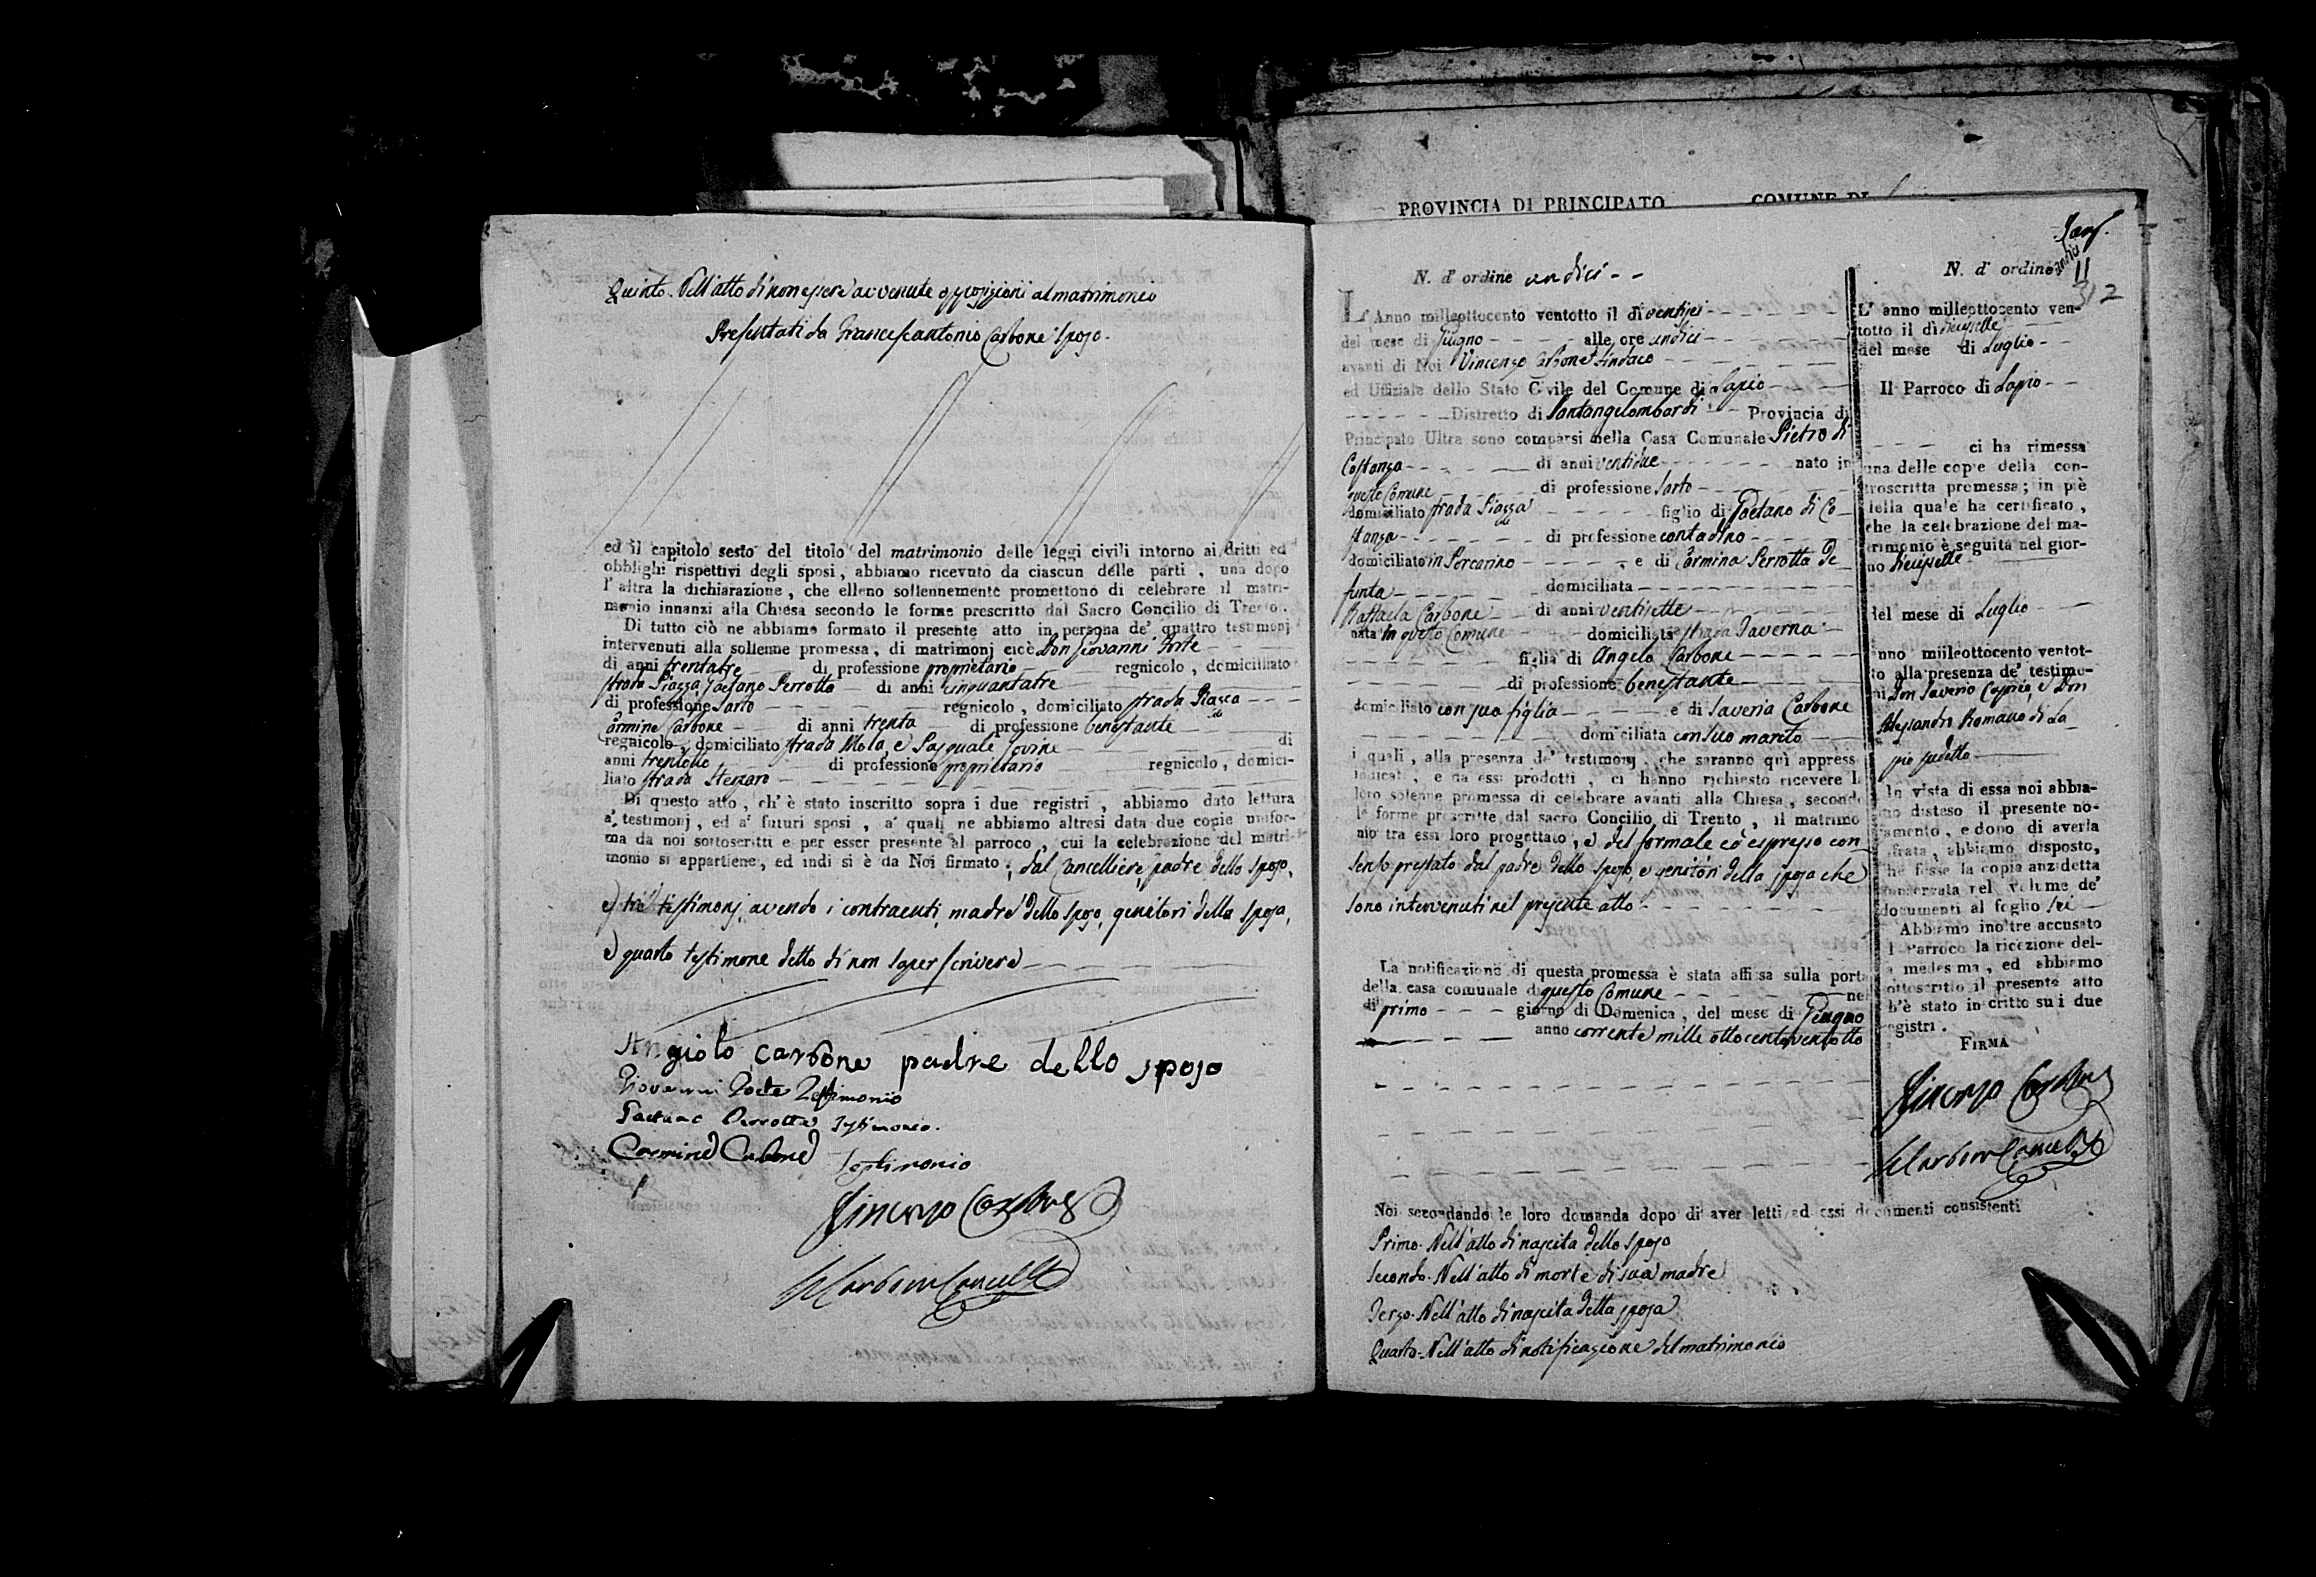 Quinto. Nell'atto di non essere avvenute opposizioni al matrimonio
Presentati da Francescantonio Carbone sposo.
ed il capitolo sesto del titolo del matrimonio delle leggi civili intorno ai dritti ed
obblighi rispettivi degli sposi, abbiamo ricevuto da ciascun delle parti, una dopo
l'altra la dichiarazione, che elleno sollennemente promettono di celebrare il matri-
monio innanzi alla Chiesa secondo le forme prescritto dal Sacro Concilio di Trento.
Di tutto ciò ne abbiamo formato il presente atto in persona de' quattro testimonj
intervenuti alla sollenne promessa, di matrimonj cioè Don Giovanni Forte
di anni trentatre di professione proprietario regnicolo, domiciliato
strada Piazza, Gaetano Perrotta di anni cinquantatre
di professione Sarto regnicolo, domiciliato strada Piazza
Carmine Carbone di anni trenta di professione benestante
regnicolo, domiciliato strada Mola, e Pasquale Iovine di
anni trentotto di professione proprietario regnicolo, domici-
liato strada
Di questo atto, ch'è stato inscritto sopra i due registri, abbiamo dato lettura
a' testimonj, ed a' futuri sposi, a' quali ne abbiamo altresì data due copie unifor-
ma da noi sottoscritti e per esser presente al parroco, cui la celebrazione del matri-
monio si appartiene, ed indi si è da Noi firmato, dal Cancelliere, padre dello sposo,
e tre testimonj avendo i contraenti, madre dello sposo, genitori della sposa,
e quarto testimone detto di non saper scrivere
Angiolo carbone padre dello sposo
Giovanni Forte Testimonio
Gaetano Perrotta Testimonio.
Carmine Carbone Testimonio
Vincenzo Carbone
Carbone Cancell.
PROVINCIA DI PRINCIPATO COMUNE DI
N. d' ordine undici
L'Anno milleottocento ventotto il dì ventisei
del mese di Giugno alle ore undici
avanti di Noi Vincenzo Carbone Sindaco
ed Uffiziale dello Stato Civile del Comune di Lapio
Distretto di Santangelombardi Provincia di
Principato Ultra sono comparsi nella Casa Comunale Pietro di
Costanza di anni ventidue nato in
questo Comune di professione Sarto
domiciliato strada Piazza figlio di Gaetano di Co-
stanza di professione contadino
domiciliato in Porcarino e di Carmina Perrotta de-
funta domiciliata
Raffaela Carbone di anni ventisette
nata in questo Comune domiciliata strada Taverna
figlia di Angelo Carbone
di professione benestante
domiciliato con sua figlia e di Saveria Carbone
domiciliata con suo marito
i quali, alla presenza de' testimonj, che saranno quì appress
indicati, e da essi prodotti, ci hanno richiesto ricevere l
loro solenne promessa di celebrare avanti alla Chiesa, second
le forme prescritte dal sacro Concilio di Trento, il matrimo
nio tra essi loro progettato, e del formale ed espresso con
senso prestato dal padre dello sposo, e genitori della sposa che
sono intervenuti nel presente atto
La notificazione di questa promessa è stata affissa sulla porta
della casa comunale di questo Comune nel
dì primo giorno di Domenica, del mese di Giugno
anno corrente mille ottocentoventotto
N. d' ordine undici
11
312
L' anno milleottocento ven-
totto il dì diciassette
del mese di Luglio
Il Parroco di Lapio
ci ha rimessa
una delle copie della con-
troscritta promessa; in piè
della quale ha certificato,
che la celebrazione del ma-
trimonio è seguita nel gior-
no diciassette
del mese di Luglio
anno milleottocento ventot-
to alla presenza de' testimo-
ni Don Saverio Caprio, e Don
Alessandro Romano di La-
pio sudetto
In vista di essa noi abbia-
mo disteso il presente no-
tamento, e dopo di averla
cifrata, abbiamo disposto,
che fosse la copia anzidetta
conservata nel volume de'
documenti al foglio sei
Abbiamo inoltre accusato
l Parroco la ricezione del-
a medesima, ed abbiamo
ottoscritto il presente atto
h'è stato inscritto su i due
egistri.
FIRMA
Vincenzo Carbone
Carbone Cancell.
Noi secondando le loro domanda dopo di aver letti ad essi documenti consistenti
Primo. Nell'atto di nascita dello sposo
Secondo. Nell'atto di morte di sua madre
Terzo. Nell'atto di nascita della sposa
Quarto. Nell'atto di notificazione del matrimonio